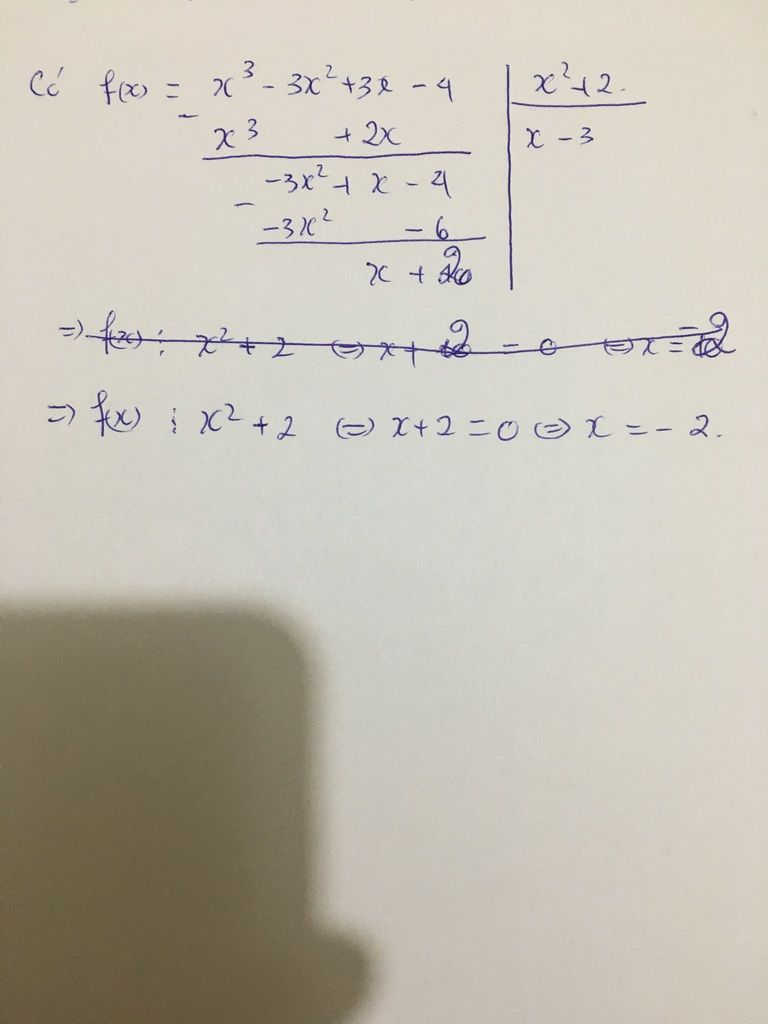 Có f(x) = x³ - 3x² + 3x - 4 | x² + 2.
- x³ + 2x | x - 3
-3x² + x - 4
- -3x² - 6
x + 2
=> f(x) ⋮ x² + 2 <=> x + 2 = 0 <=> x = -2
=> f(x) ⋮ x² + 2 <=> x + 2 = 0 <=> x = - 2.